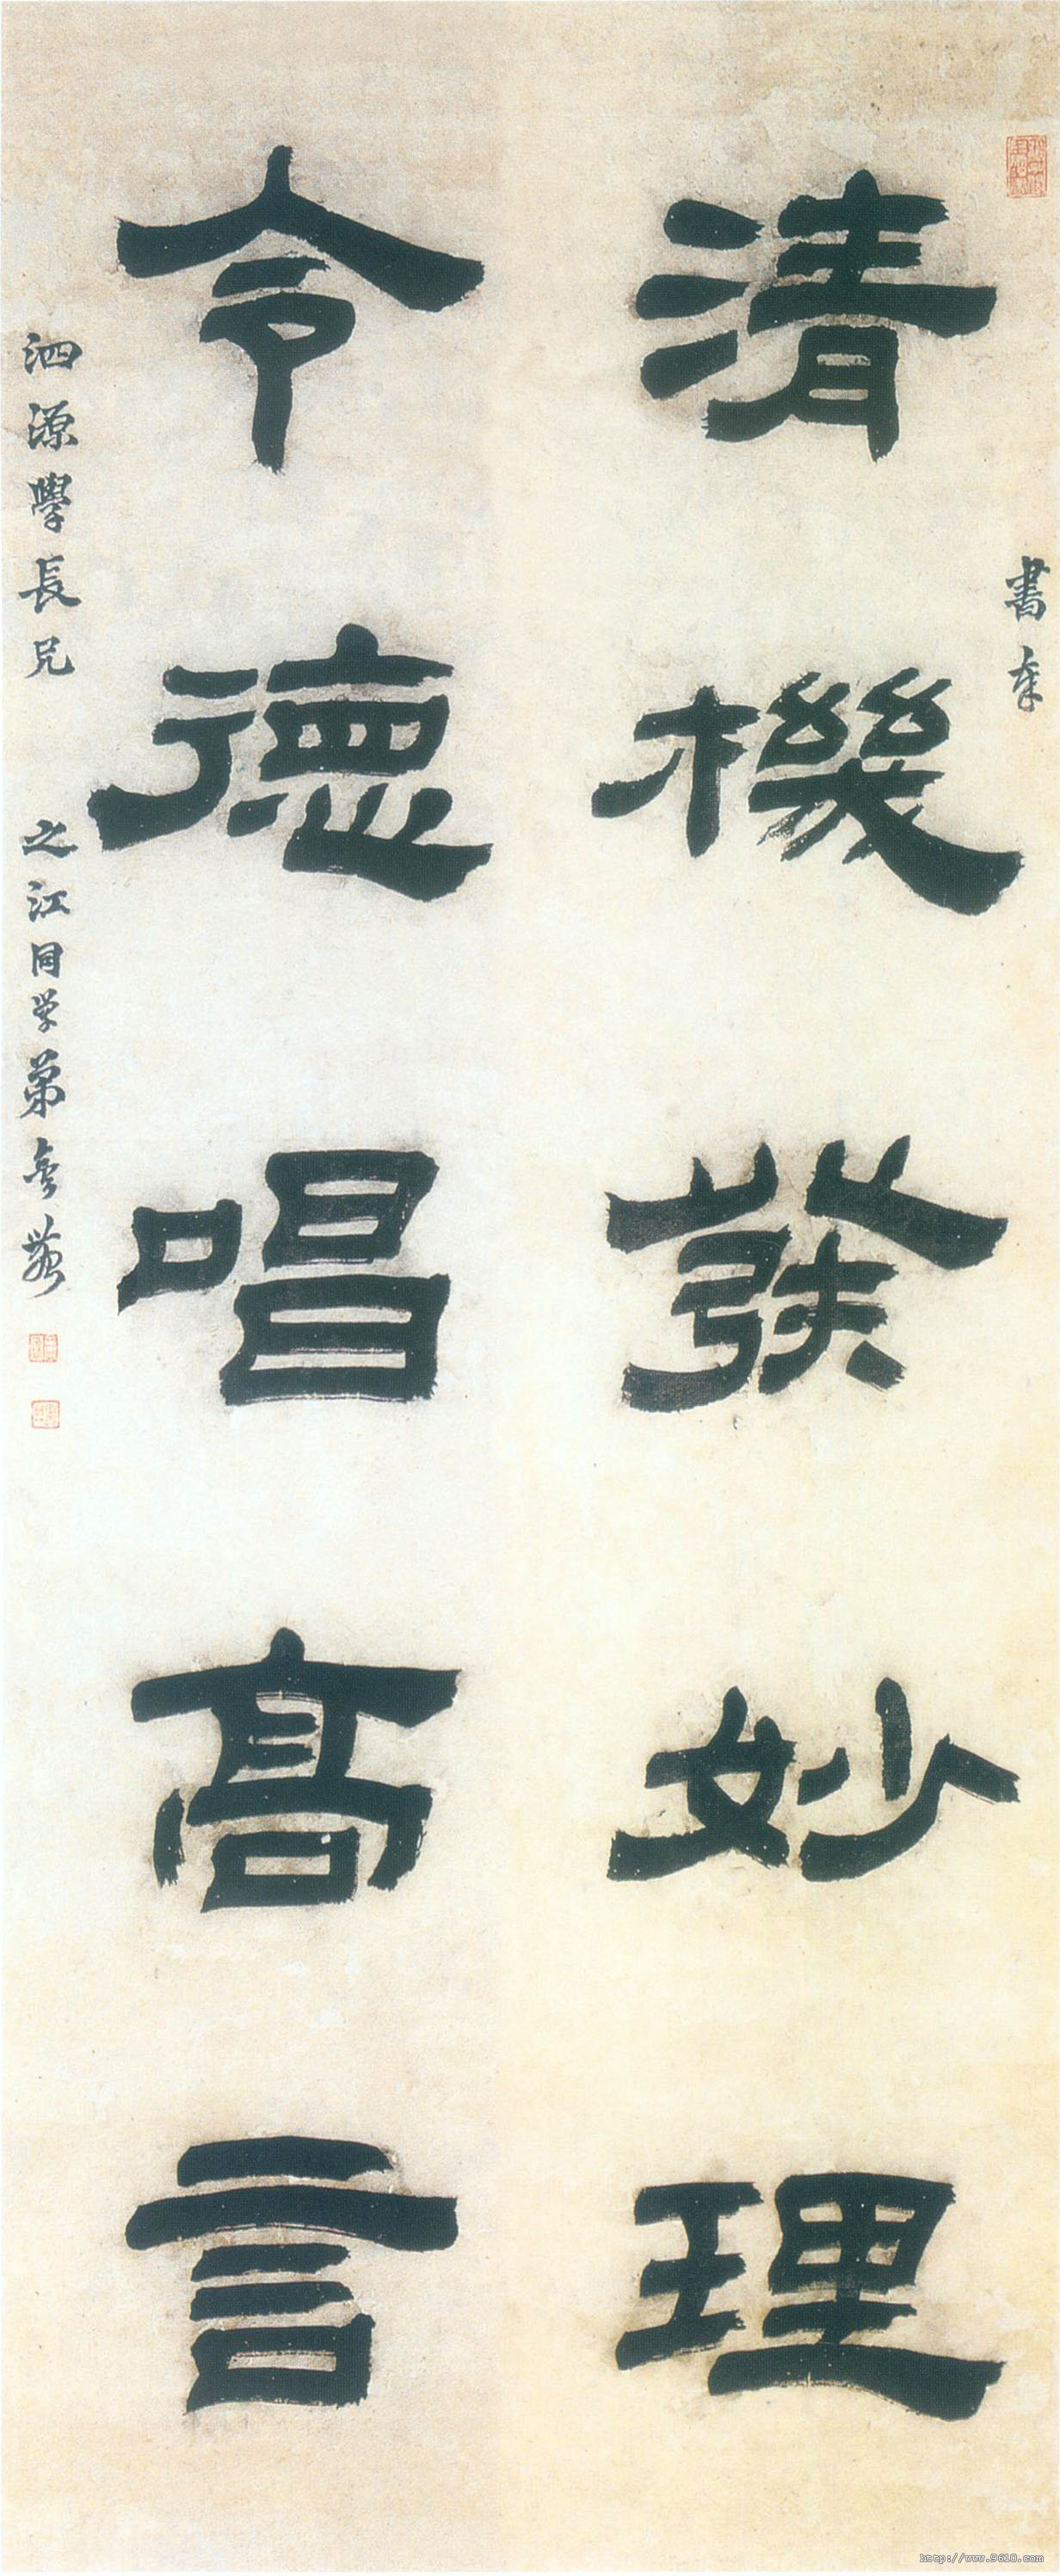 書奉
清機發妙理
令德唱高言
泗源學長兄 之江同学弟金農
http://www.9610.com